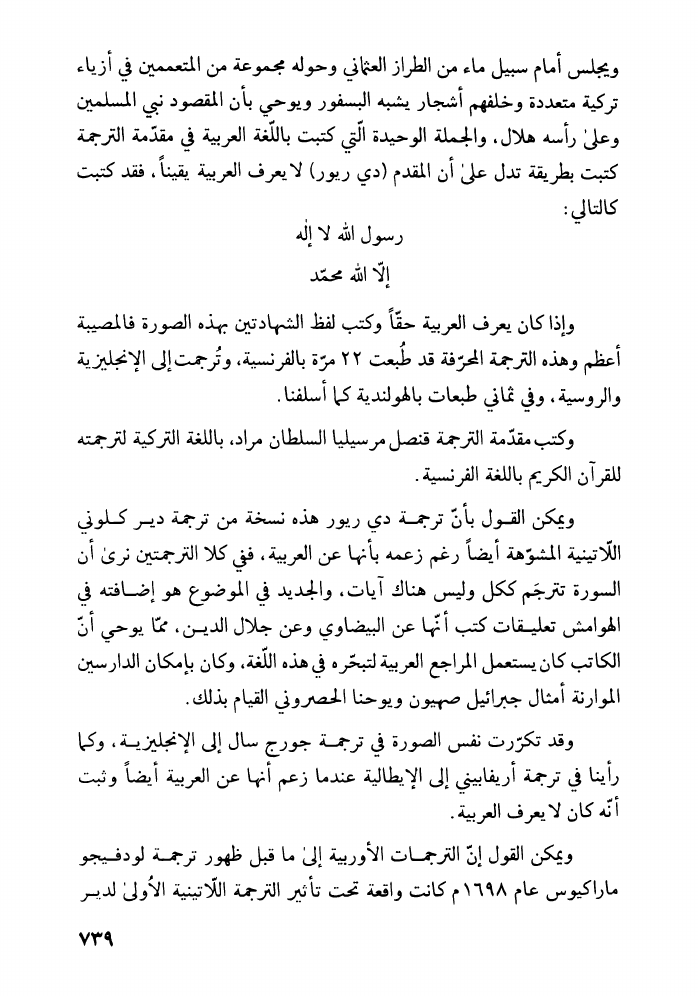 ويجلس أمام سبيل ماء من الطراز العثماني وحوله مجموعة من المتعممين في أزياء
تركية متعددة وخلفهم أشجار يشبه البسفور ويوحي بأن المقصود نبي المسلمين
وعلىٰ رأسه هلال، والجملة الوحيدة الّتي كتبت باللّغة العربية في مقدّمة الترجمة
كتبت بطريقة تدل علىٰ أن المقدم (دي ريور) لا يعرف العربية يقيناً، فقد كتبت
كالتالي:
رسول الله لا إلٰه
إلّا الله محمّد
وإذا كان يعرف العربية حقّاً وكتب لفظ الشهادتين بهذه الصورة فالمصيبة
أعظم وهذه الترجمة المحرّفة قد طُبعت ٢٢ مرّة بالفرنسية، وتُرجمت إلى الإنجليزية
والروسية، وفي ثماني طبعات بالهولندية كما أسلفنا.
وكتب مقدّمة الترجمة قنصل مرسيليا السلطان مراد، باللغة التركية لترجمته
للقرآن الكريم باللغة الفرنسية.
ويمكن القـول بأنّ ترجمـة دي ريور هذه نسخة من ترجمة ديـر كـلوني
اللّاتينية المشوّهة أيضاً رغم زعمه بأنها عن العربية، ففي كلا الترجمتين نرىٰ أن
السورة تترجَم ككل وليس هناك آيات، والجديد في الموضوع هو إضـافته في
الهوامش تعليـقات كتب أنّها عن البيضاوي وعن جلال الديـن، ممّا يوحي أنّ
الكاتب كان يستعمل المراجع العربية لتبحّره في هذه اللّغة، وكان بإمكان الدارسين
الموارنة أمثال جبرائيل صهيون ويوحنا الحصروني القيام بذلك.
وقد تكرّرت نفس الصورة في ترجمـة جورج سال إلى الإنجليزيـة، وكما
رأينا في ترجمة أريفابيني إلى الإيطالية عندما زعم أنها عن العربية أيضاً وثبت
أنّه كان لا يعرف العربية.
ويمكن القول إنّ الترجمـات الأوربية إلىٰ ما قبل ظهور ترجمـة لودفـيجو
ماراكيوس عام ١٦٩٨م كانت واقعة تحت تأثير الترجمة اللّاتينية الأُولىٰ لديـر
٧٣٩